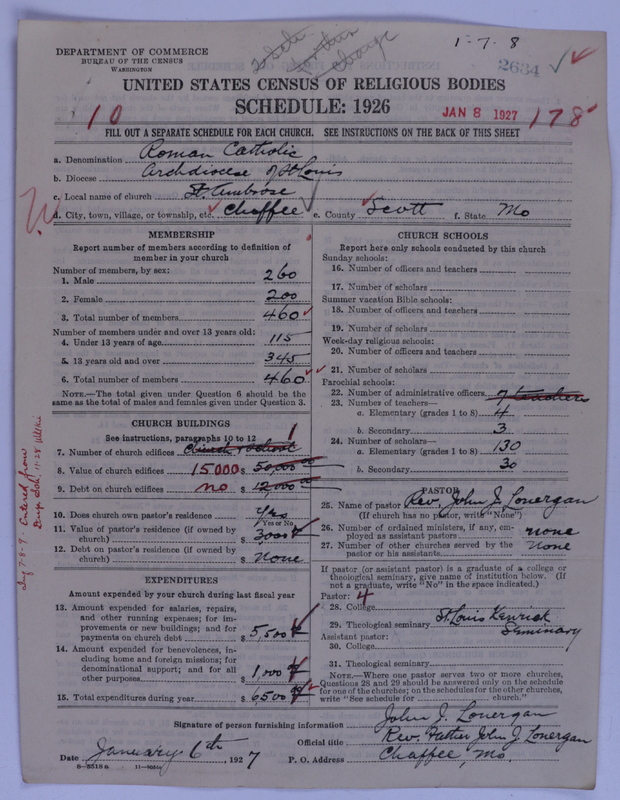 1-7-8
DEPARTMENT OF COMMERCE
BUREAU OF THE CENSUS
WASHINGTON
2634
UNITED STATES CENSUS OF RELIGIOUS BODIES
SCHEDULE: 1926
10
JAN 8 1927
178
FILL OUT A SEPARATE SCHEDULE FOR EACH CHURCH. SEE INSTRUCTIONS ON THE BACK OF THIS SHEET
a. Denomination Roman Catholic
b. Diocese Archdiocese of St Louis
c. Local name of church St. Ambrose
d. City, town, village, or township, etc. Chaffee e. County Scott f. State Mo
MEMBERSHIP
Report number of members according to definition of
member in your church
Number of members, by sex:
1. Male 260
2. Female 200
3. Total number of members 460
Number of members under and over 13 years old:
4. Under 13 years of age 115
5. 13 years old and over 345
6. Total number of members 460
NOTE.—The total given under Question 6 should be the
same as the total of males and females given under Question 3.
CHURCH BUILDINGS
See instructions, paragraphs 10 to 12
7. Number of church edifices Church & School 1
8. Value of church edifices 15000 $ 50,000 00
9. Debt on church edifices no $ 12,000 00
10. Does church own pastor's residence Yes
Yes or No
11. Value of pastor's residence (if owned by
church) $ 3000
12. Debt on pastor's residence (if owned by
church) $ None
EXPENDITURES
Amount expended by your church during last fiscal year
13. Amount expended for salaries, repairs,
and other running expenses; for im-
provements or new buildings; and for
payments on church debt $ 5,500
14. Amount expended for benevolences, in-
cluding home and foreign missions; for
denominational support; and for all
other purposes $ 1,000
15. Total expenditures during year $ 6500
CHURCH SCHOOLS
Report here only schools conducted by this church
Sunday schools:
16. Number of officers and teachers
17. Number of scholars
Summer vacation Bible schools:
18. Number of officers and teachers
19. Number of scholars
Week-day religious schools:
20. Number of officers and teachers
21. Number of scholars
Parochial schools:
22. Number of administrative officers 7 teachers
23. Number of teachers—
a. Elementary (grades 1 to 8) 4
b. Secondary 3
24. Number of scholars—
a. Elementary (grades 1 to 8) 130
b. Secondary 30
PASTOR
25. Name of pastor Rev. John J. Lonergan
(If church has no pastor, write "None")
26. Number of ordained ministers, if any, em-
ployed as assistant pastors none
27. Number of other churches served by the
pastor or his assistants None
If pastor (or assistant pastor) is a graduate of a college or
theological seminary, give name of institution below. (If
not a graduate, write "No" in the space indicated.)
Pastor: 4
28. College
29. Theological seminary St. Louis Kenrick
Seminary
Assistant pastor:
30. College
31. Theological seminary
NOTE.—Where one pastor serves two or more churches,
Questions 28 and 29 should be answered only on the schedule
for one of the churches; on the schedules for the other churches,
write "See schedule for church.
Signature of person furnishing information John J. Lonergan
Official title Rev. Father John J. Lonergan
Date January 6th, 1927
P. O. Address Chaffee, Mo.
8—5518a